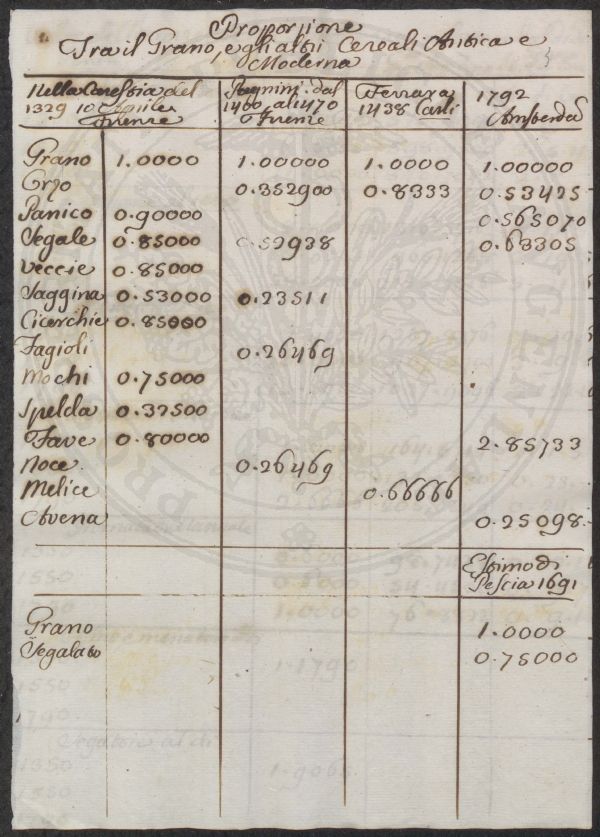 Proporzione
Tra il Grano, e gli altri Cereali Antica e
Moderna
Nella Carestia del
1329 10 Aprile
Firenze
Pagnini. dal
1460 al 1470
Firenze
Ferrara
1438 Carli
1792
Amsterda
Grano 1.0000 1.00000 1.0000 1.00000
Orzo 0.352900 0.8333 0.53425
Panico 0.90000 0.565070
Segale 0.85000 0.52938 0.63305
Veccie 0.85000
Saggina 0.53000 0.23511
Cicerchie 0.85000
Fagioli 0.26469
Mochi 0.75000
Spelda 0.32500
Fave 0.80000 2.85733
Noce. 0.26469
Melice 0.66666
Avena 0.25098
Estimo di
Pescia 1691
Grano 1.0000
Segalato 0.75000